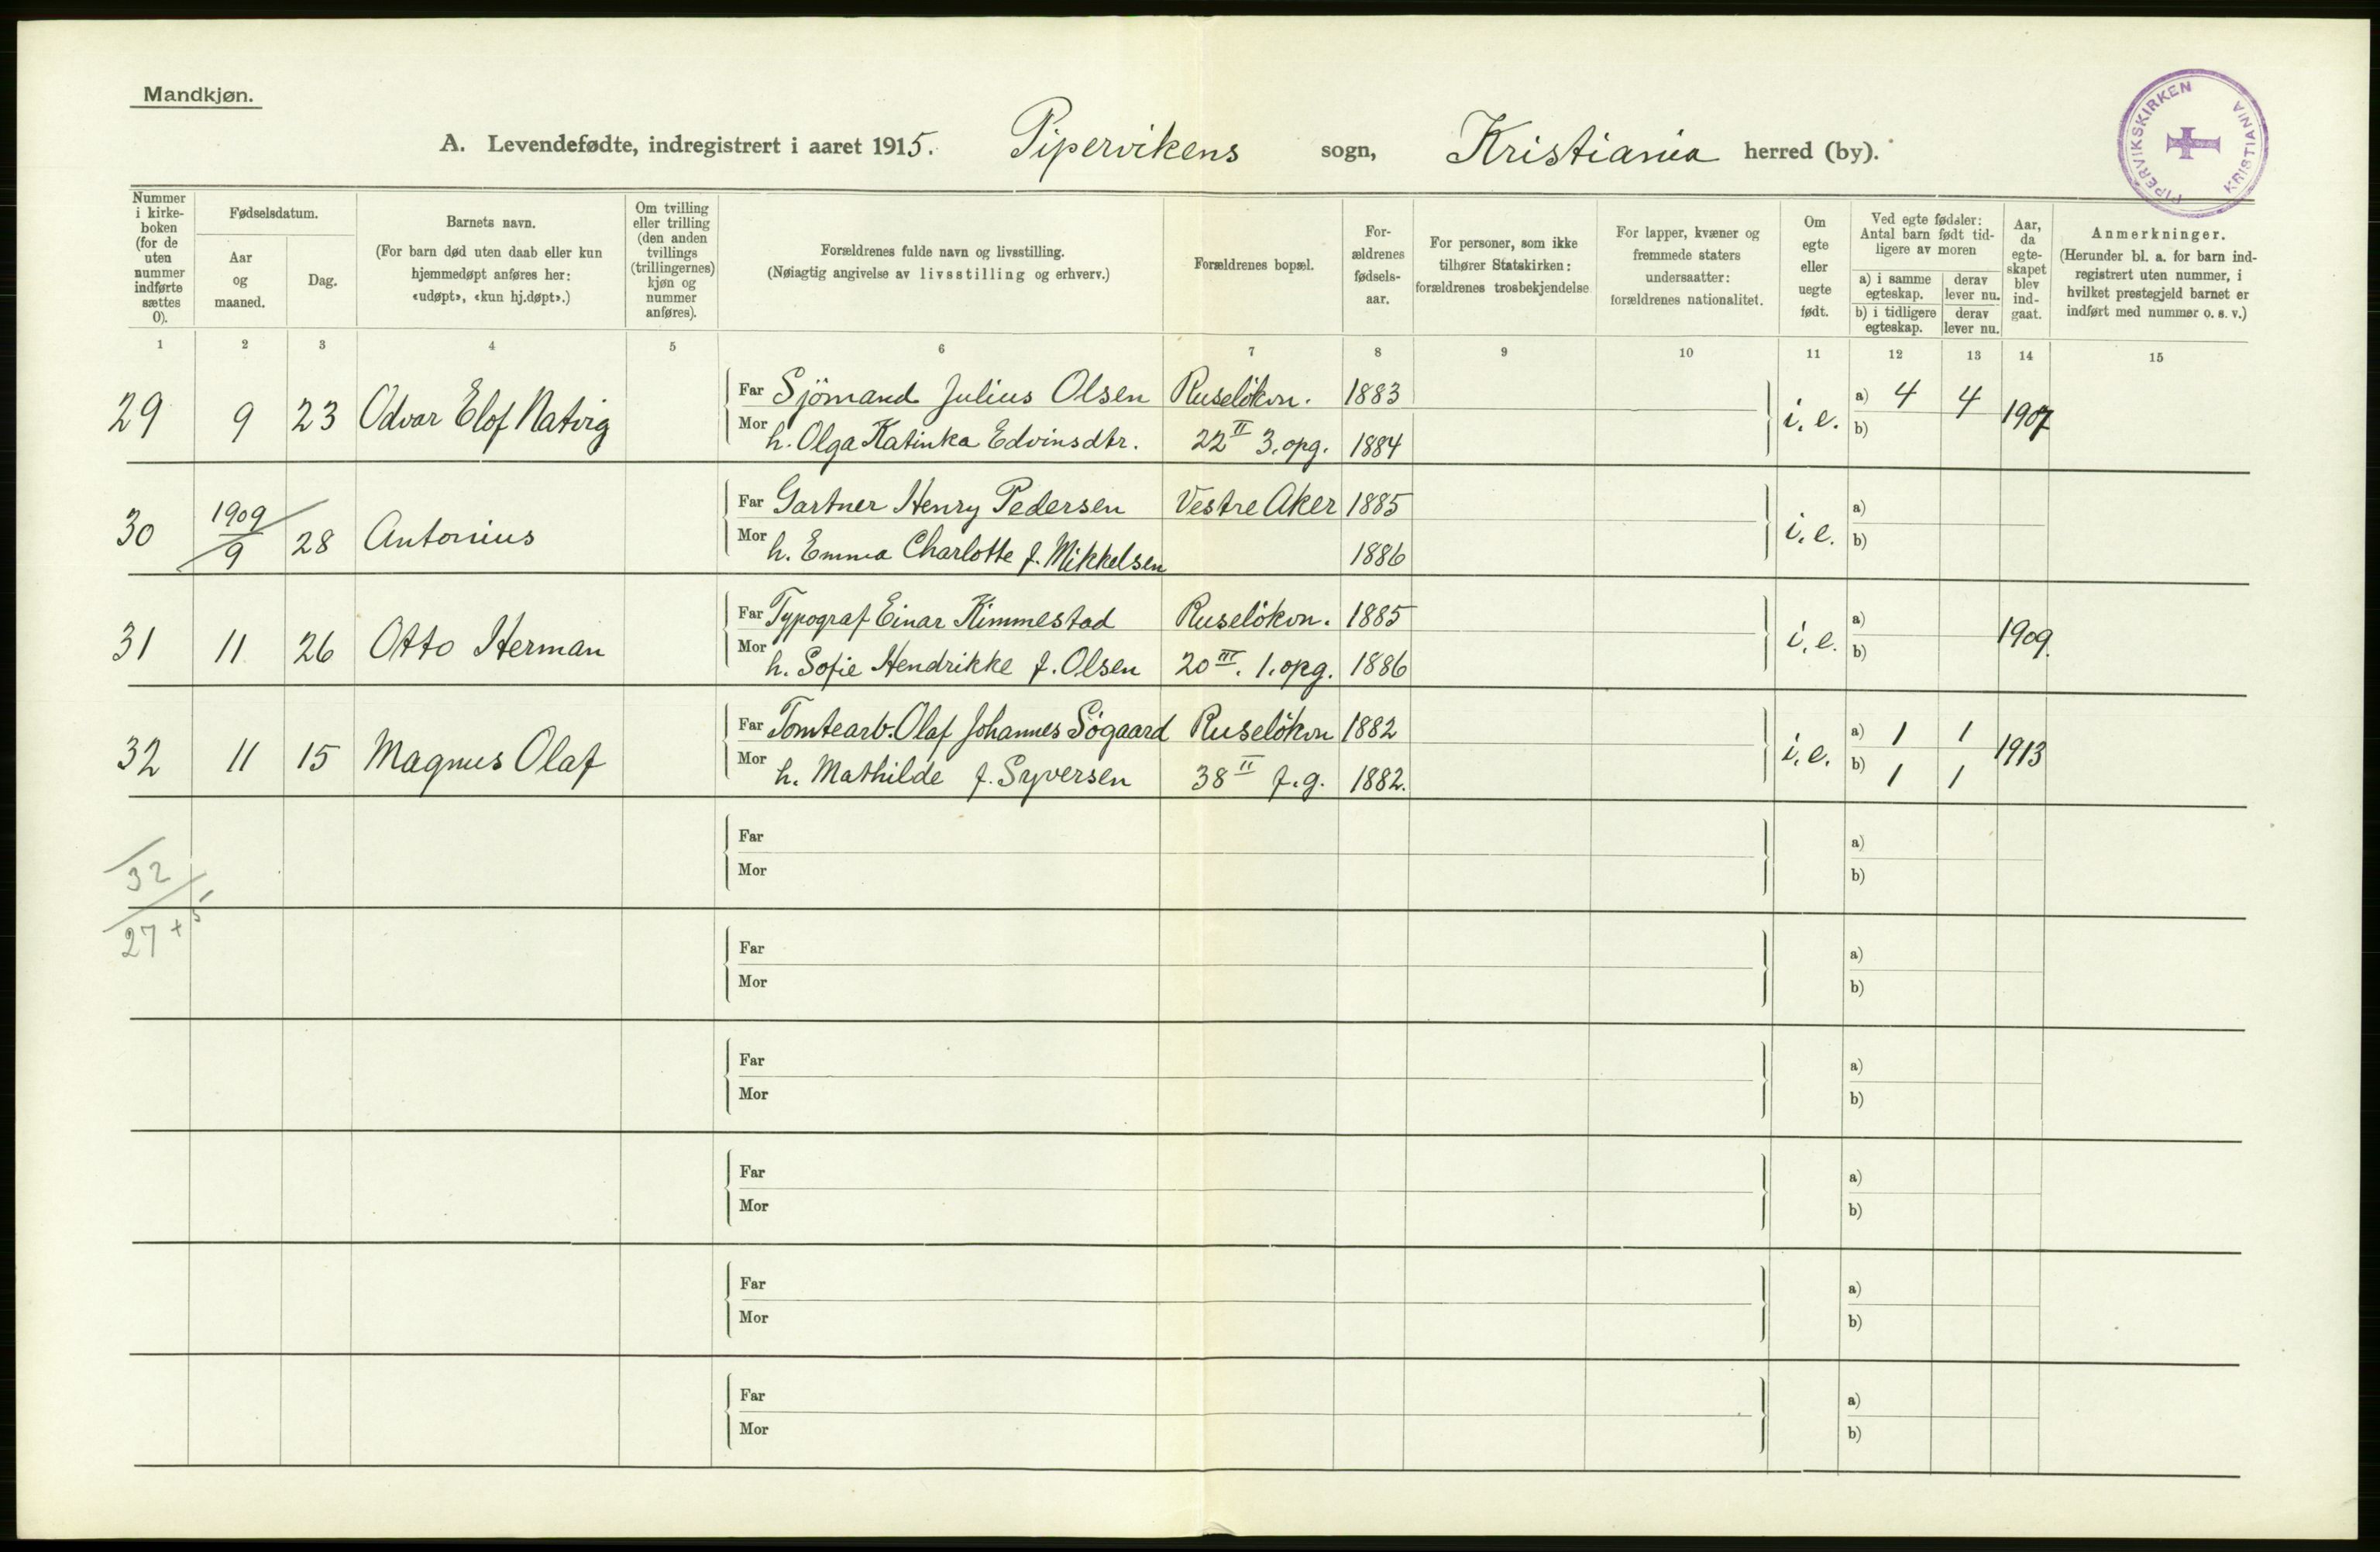 Mandkjøn.
A. Levendefødte, indregistrert i aaret 1915. Pipervikens sogn, Kristiania herred (by).
PIPERVIKSKIRKEN KRISTIANIA
Nummer i kirke-boken (for de uten nummer indførte sættes 0).
Fødselsdatum.
Aar og maaned.
Dag.
Barnets navn.
(For barn død uten daab eller kun hjemmedøpt anføres her: «udøpt», «kun hj.døpt».)
Om tvilling eller trilling (den anden tvillings (trillingernes) kjøn og nummer anføres).
Forældrenes fulde navn og livsstilling.
(Nøiagtig angivelse av livsstilling og erhverv.)
Forældrenes bopæl.
For-ældrenes fødsels-aar.
For personer, som ikke tilhører Statskirken: forældrenes trosbekjendelse
For lapper, kvæner og fremmede staters undersaatter: forældrenes nationalitet.
Om egte eller uegte født.
Ved egte fødsler: Antal barn født tid-ligere av moren
a) i samme egteskap. derav lever nu.
b) i tidligere egteskap. derav lever nu.
Aar, da egte-skapet blev ind-gaat.
Anmerkninger.
(Herunder bl. a. for barn ind-registrert uten nummer, i hvilket prestegjeld barnet er indført med nummer o. s. v.)
1 2 3 4 5 6 7 8 9 10 11 12 13 14 15
29 9 23 Odvar Elof Natvig Far Sjömand Julius Olsen Ruselökvn. 1883 i. e. a) 4 4 1907
Mor h. Olga Katinka Edvinsdtr. 22 II 3. opg. 1884 b)
30 1909/9 28 Antonius Far Gartner Henry Pedersen Vestre Aker 1885 i. e. a)
Mor h. Emma Charlotte f. Mikkelsen 1886 b)
31 11 26 Otto Herman Far Typograf Einar Kimmestad Ruselökvn. 1885 i. e. a) 1909.
Mor h. Sofie Hendrikke f. Olsen 20 III. 1. opg. 1886 b)
32 11 15 Magnus Olaf Far Tomtearb. Olaf Johannes Sögaard Ruselökvn 1882 i. e. a) 1 1 1913
Mor h. Mathilde f. Syversen 38 II f. g. 1882. b) 1 1
Far a)
Mor b)
32
27 + 5
Far a)
Mor b)
Far a)
Mor b)
Far a)
Mor b)
Far a)
Mor b)
Far a)
Mor b)